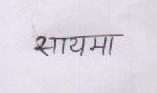 सायमा